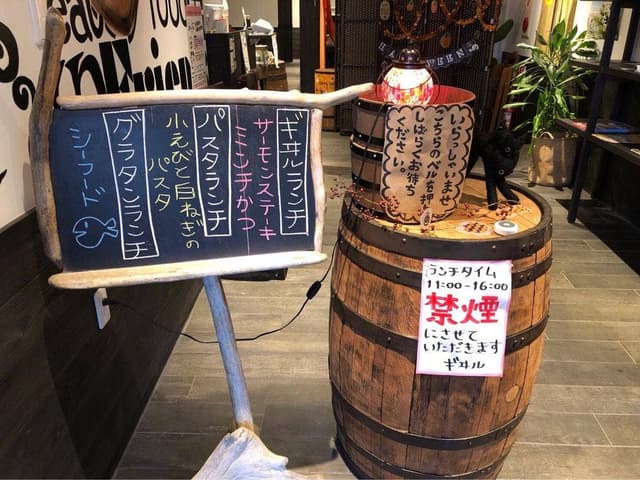 ギヰルランチ
サーモンステキ
ミンチかつ
パスタランチ
小えびと白ねぎの
パスタ
グラタンランチ
シーフード
いらっしゃいませ
こちらのベルを押し
しばらくお待ち
ください。
ランチタイム
11:00-16:00
禁煙
にさせて
いただきます
ギヰル